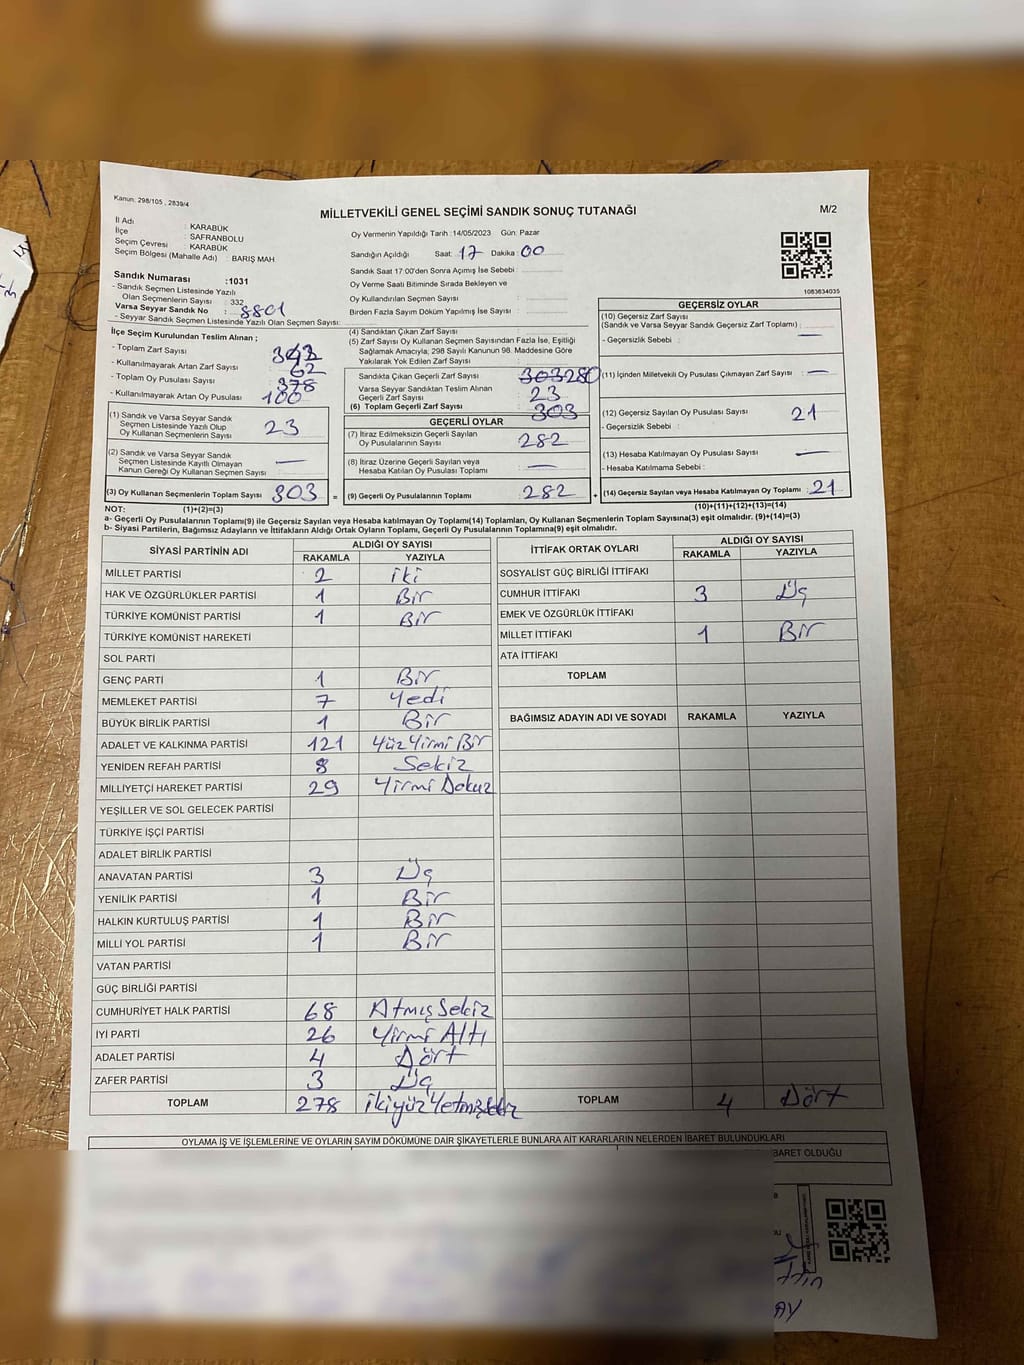 Kanun: 298/105 , 2839/4
MİLLETVEKİLİ GENEL SEÇİMİ SANDIK SONUÇ TUTANAĞI
M/2
İl Adı : KARABÜK
İlçe : SAFRANBOLU
Seçim Çevresi : KARABÜK
Seçim Bölgesi (Mahalle Adı) : BARIŞ MAH
Sandık Numarası :1031
- Sandık Seçmen Listesinde Yazılı
Olan Seçmenlerin Sayısı : 332
Varsa Seyyar Sandık No : 8801
- Seyyar Sandık Seçmen Listesinde Yazılı Olan Seçmen Sayısı:
Oy Vermenin Yapıldığı Tarih :14/05/2023 Gün: Pazar
Sandığın Açıldığı Saat: 17 Dakika: 00
Sandık Saat 17:00'den Sonra Açımış İse Sebebi :
Oy Verme Saati Bitiminde Sırada Bekleyen ve
Oy Kullandırılan Seçmen Sayısı :
Birden Fazla Sayım Döküm Yapılmış İse Sayısı :
1083634035
İlçe Seçim Kurulundan Teslim Alınan ;
- Toplam Zarf Sayısı
- Kullanılmayarak Artan Zarf Sayısı : 62
- Toplam Oy Pusulası Sayısı : 378
- Kullanılmayarak Artan Oy Pusulası : 100
(1) Sandık ve Varsa Seyyar Sandık
Seçmen Listesinde Yazılı Olup
Oy Kullanan Seçmenlerin Sayısı : 23
(2) Sandık ve Varsa Seyyar Sandık
Seçmen Listesinde Kayıtlı Olmayan
Kanun Gereği Oy Kullanan Seçmen Sayısı : —
(3) Oy Kullanan Seçmenlerin Toplam Sayısı : 303 =
(4) Sandıktan Çıkan Zarf Sayısı :
(5) Zarf Sayısı Oy Kullanan Seçmen Sayısından Fazla İse, Eşitliği
Sağlamak Amacıyla; 298 Sayılı Kanunun 98. Maddesine Göre
Yakılarak Yok Edilen Zarf Sayısı :
Sandıkta Çıkan Geçerli Zarf Sayısı : 303 280
Varsa Seyyar Sandıktan Teslim Alınan
Geçerli Zarf Sayısı : 23
(6) Toplam Geçerli Zarf Sayısı : 303
GEÇERLİ OYLAR
(7) İtiraz Edilmeksizin Geçerli Sayılan
Oy Pusulalarının Sayısı : 282
(8) İtiraz Üzerine Geçerli Sayılan veya
Hesaba Katılan Oy Pusulası Toplamı : —
(9) Geçerli Oy Pusulalarının Toplamı : 282 +
GEÇERSİZ OYLAR
(10) Geçersiz Zarf Sayısı
(Sandık ve Varsa Seyyar Sandık Geçersiz Zarf Toplamı) : —
- Geçersizlik Sebebi :
(11) İçinden Milletvekili Oy Pusulası Çıkmayan Zarf Sayısı : —
(12) Geçersiz Sayılan Oy Pusulası Sayısı : 21
- Geçersizlik Sebebi :
(13) Hesaba Katılmayan Oy Pusulası Sayısı : —
- Hesaba Katılmama Sebebi :
(14) Geçersiz Sayılan veya Hesaba Katılmayan Oy Toplamı : 21
NOT: (1)+(2)=(3)
(10)+(11)+(12)+(13)=(14)
a- Geçerli Oy Pusulaları Toplamı(9) ile Geçersiz Sayılan veya Hesaba katılmayan Oy Toplamı(14) Toplamları, Oy Kullanan Seçmenlerin Toplam Sayısına(3) eşit olmalıdır. (9)+(14)=(3)
b- Siyasi Partilerin, Bağımsız Adayların ve İttifakların Aldığı Ortak Oyların Toplamı, Geçerli Oy Pusulalarının Toplamına(9) eşit olmalıdır.
SİYASİ PARTİNİN ADI
ALDIĞI OY SAYISI
RAKAMLA YAZIYLA
MİLLET PARTİSİ 2 iki
HAK VE ÖZGÜRLÜKLER PARTİSİ 1 Bir
TÜRKİYE KOMÜNİST PARTİSİ 1 Bir
TÜRKİYE KOMÜNİST HAREKETİ
SOL PARTİ
GENÇ PARTİ 1 Bir
MEMLEKET PARTİSİ 7 Yedi
BÜYÜK BİRLİK PARTİSİ 1 Bir
ADALET VE KALKINMA PARTİSİ 121 Yüz Yirmi Bir
YENİDEN REFAH PARTİSİ 8 Sekiz
MİLLİYETÇİ HAREKET PARTİSİ 29 Yirmi Dokuz
YEŞİLLER VE SOL GELECEK PARTİSİ
TÜRKİYE İŞÇİ PARTİSİ
ADALET BİRLİK PARTİSİ
ANAVATAN PARTİSİ 3 Üç
YENİLİK PARTİSİ 1 Bir
HALKIN KURTULUŞ PARTİSİ 1 Bir
MİLLİ YOL PARTİSİ 1 Bir
VATAN PARTİSİ
GÜÇ BİRLİĞİ PARTİSİ
CUMHURİYET HALK PARTİSİ 68 Atmış Sekiz
İYİ PARTİ 26 Yirmi Altı
ADALET PARTİSİ 4 Dört
ZAFER PARTİSİ 3 Üç
TOPLAM 278 ikiyüz Yetmişsekiz
İTTİFAK ORTAK OYLARI
ALDIĞI OY SAYISI
RAKAMLA YAZIYLA
SOSYALİST GÜÇ BİRLİĞİ İTTİFAKI
CUMHUR İTTİFAKI 3 Üç
EMEK VE ÖZGÜRLÜK İTTİFAKI
MİLLET İTTİFAKI 1 Bir
ATA İTTİFAKI
TOPLAM
BAĞIMSIZ ADAYIN ADI VE SOYADI RAKAMLA YAZIYLA
TOPLAM 4 Dört
OYLAMA İŞ VE İŞLEMLERİNE VE OYLARIN SAYIM DÖKÜMÜNE DAİR ŞİKAYETLERLE BUNLARA AİT KARARLARIN NELERDEN İBARET BULUNDUKLARI
BARET OLDUĞU